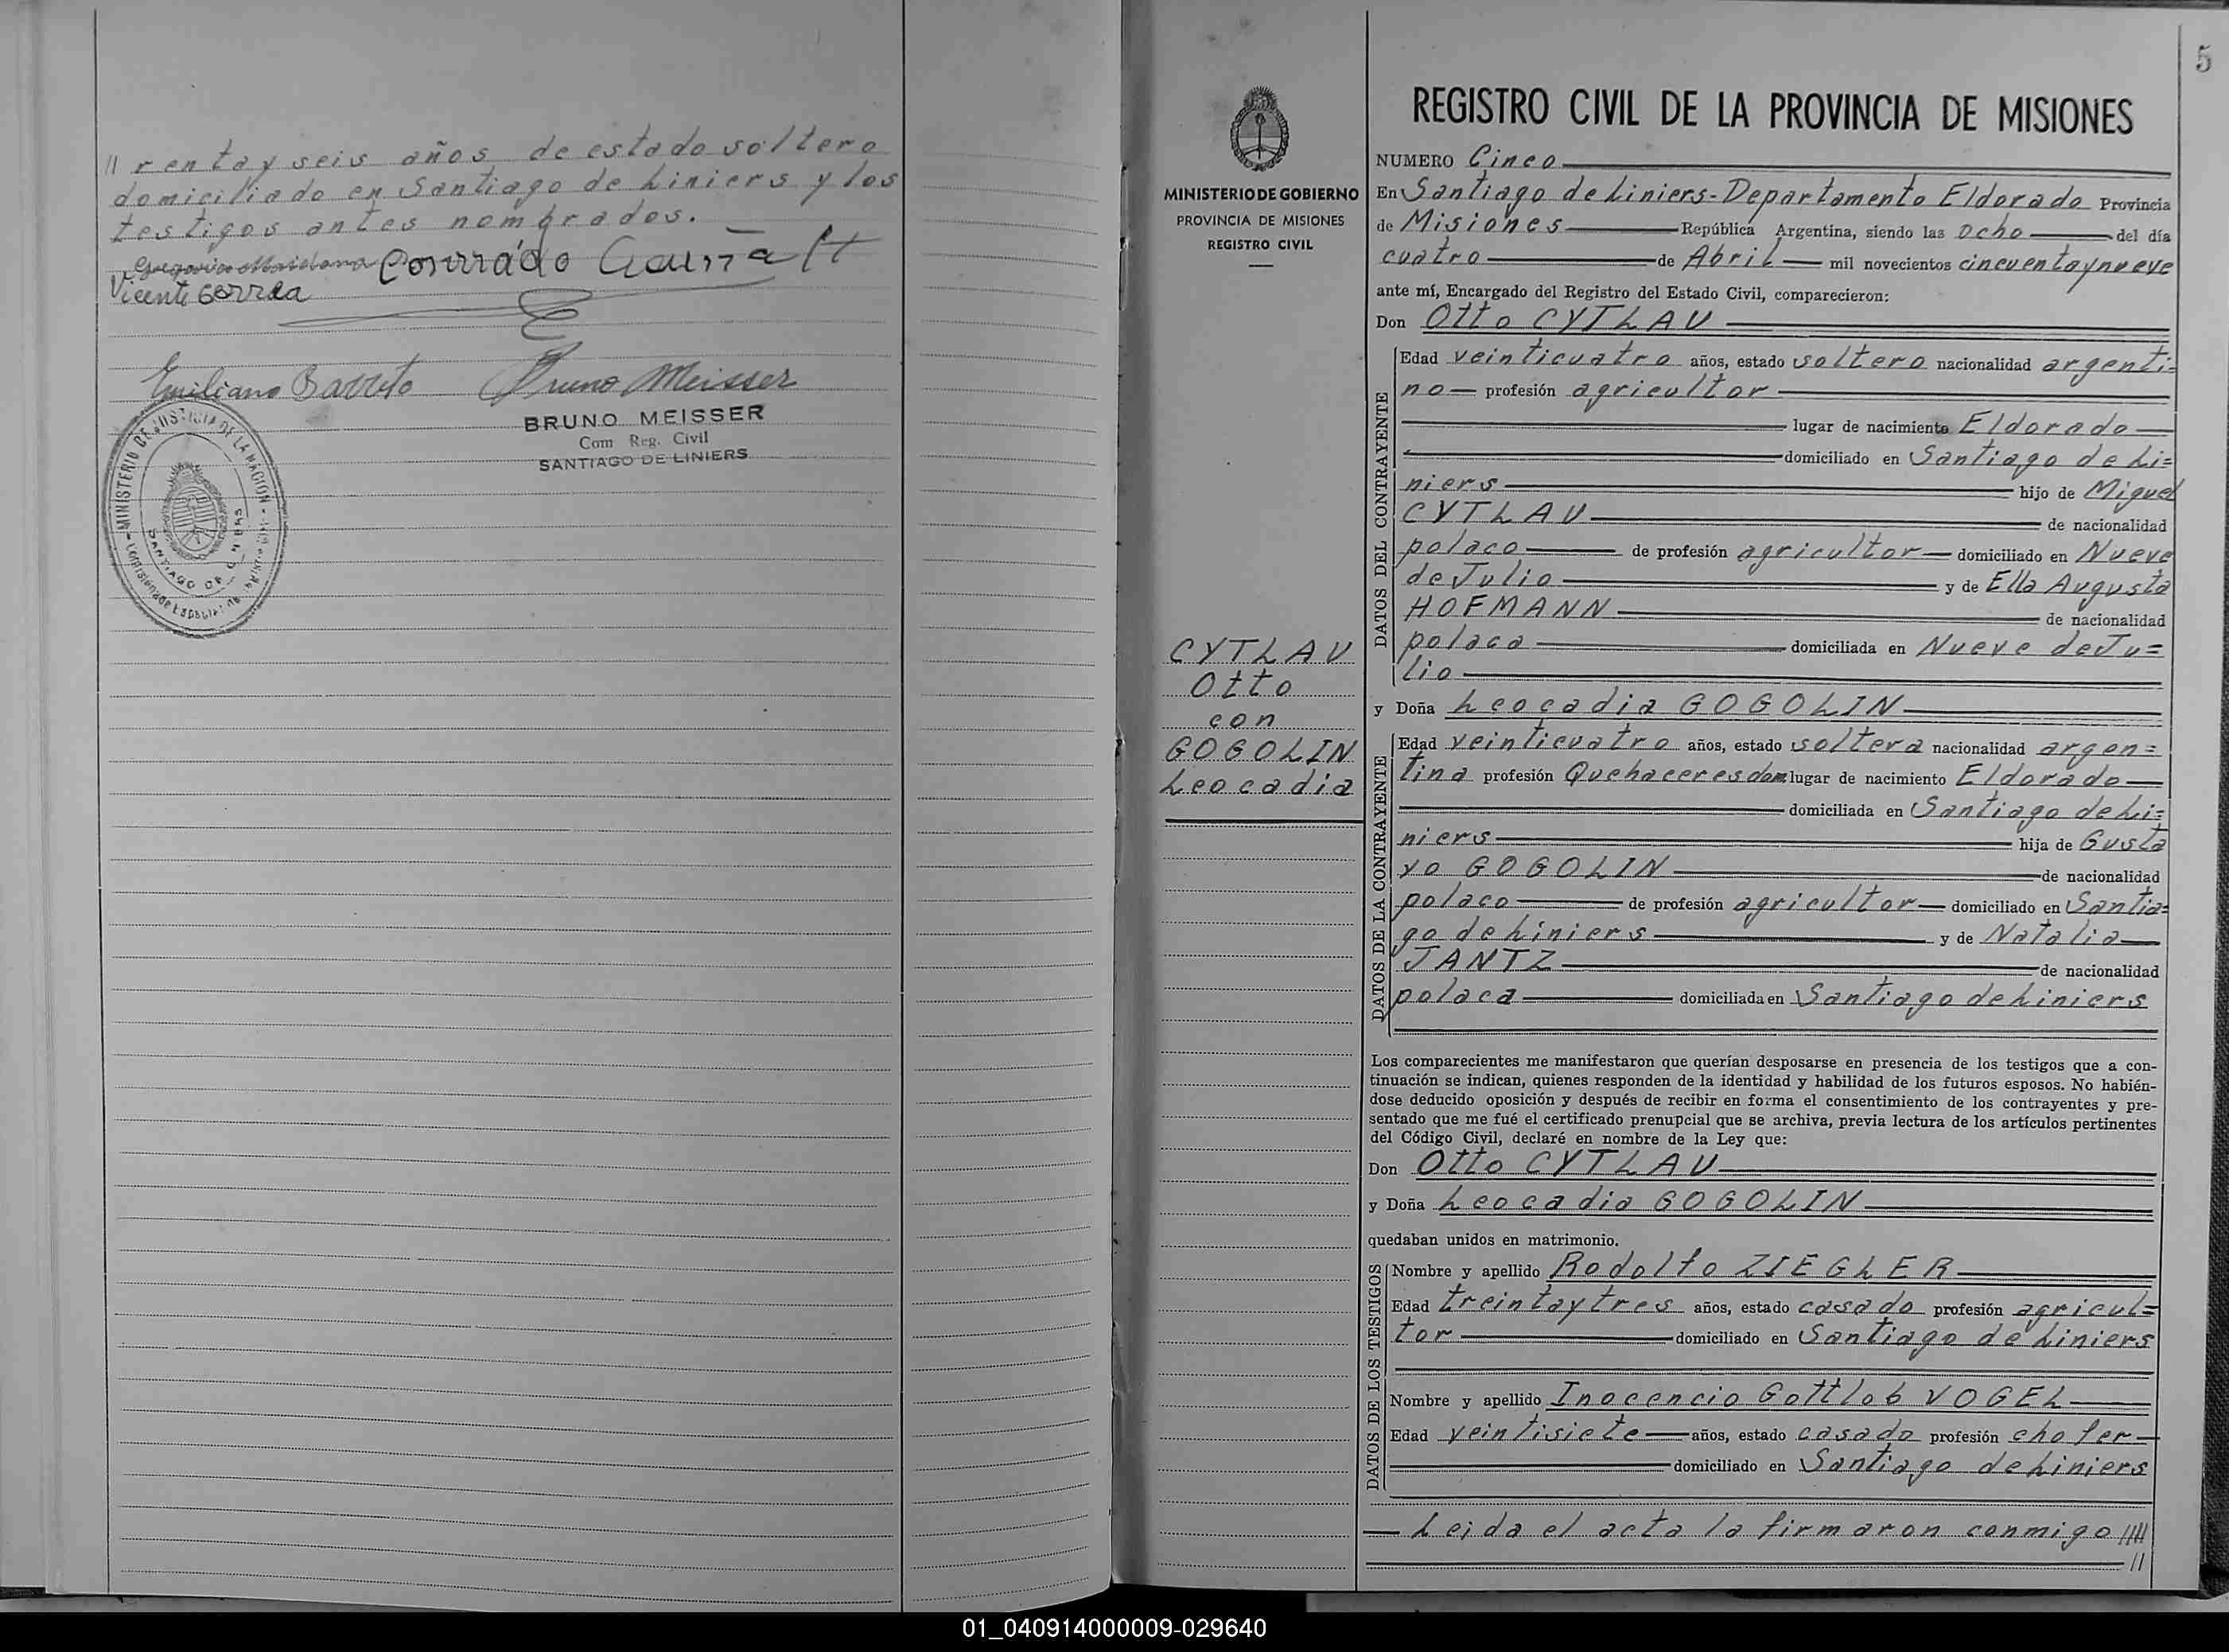 // renta y seis años de estado soltero
domiciliado en Santiago de Liniers y los
testigos antes nombrados.
Gregorio Maidana Conrrado
Vicente Correa
Emiliano Barreto Bruno Meisser
BRUNO MEISSER
Com Reg. Civil
SANTIAGO DE LINIERS
MINISTERIO DE JUSTICIA DE LA NACION
SANTIAGO DE LINIERS
5
MINISTERIO DE GOBIERNO
PROVINCIA DE MISIONES
REGISTRO CIVIL
CYTLAU
Otto
con
GOGOLIN
Leocadia
REGISTRO CIVIL DE LA PROVINCIA DE MISIONES
NUMERO Cinco
En Santiago de Liniers-Departamento Eldorado Provincia
de Misiones República Argentina, siendo las Ocho del día
cuatro de Abril mil novecientos cincuentaynueve
ante mí, Encargado del Registro del Estado Civil, comparecieron:
Don Otto CYTLAU
DATOS DEL CONTRAYENTE
Edad veinticuatro años, estado soltero nacionalidad argenti=
no profesión agricultor
lugar de nacimiento Eldorado
domiciliado en Santiago de Li=
niers hijo de Miguel
CYTLAU de nacionalidad
polaco de profesión agricultor domiciliado en Nueve
de Julio y de Ella Augusta
HOFMANN de nacionalidad
polaca domiciliada en Nueve de Ju=
lio
y Doña Leocadia GOGOLIN
DATOS DE LA CONTRAYENTE
Edad veinticuatro años, estado soltera nacionalidad argen=
tina profesión Quehaceres dom. lugar de nacimiento Eldorado
domiciliada en Santiago de Li=
niers hija de Gusta
vo GOGOLIN de nacionalidad
polaco de profesión agricultor domiciliado en Santia=
go de Liniers y de Natalia
JANTZ de nacionalidad
polaca domiciliada en Santiago de Liniers
Los comparecientes me manifestaron que querían desposarse en presencia de los testigos que a con-
tinuación se indican, quienes responden de la identidad y habilidad de los futuros esposos. No habién-
dose deducido oposición y después de recibir en forma el consentimiento de los contrayentes y pre-
sentado que me fué el certificado prenupcial que se archiva, previa lectura de los artículos pertinentes
del Código Civil, declaré en nombre de la Ley que:
Don Otto CYTLAU
y Doña Leocadia GOGOLIN
quedaban unidos en matrimonio.
DATOS DE LOS TESTIGOS
Nombre y apellido Rodolfo ZIEGLER
Edad treintaytres años, estado casado profesión agricul=
tor domiciliado en Santiago de Liniers
Nombre y apellido Inocencio Gottlob VOGEL
Edad veintisiete años, estado casado profesión chofer
domiciliado en Santiago de Liniers
Leida el acta la firmaron conmigo ////
//
01_040914000009-029640